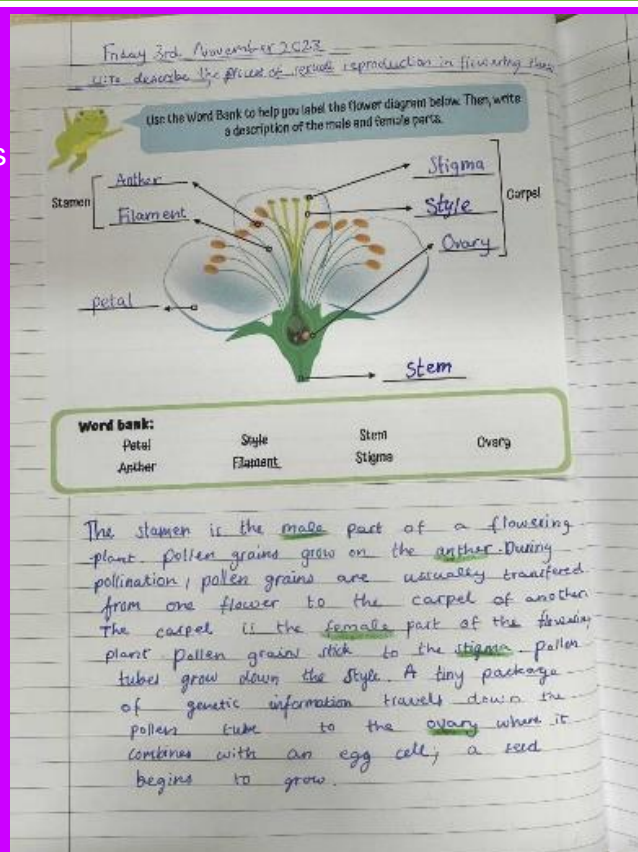 s
Friday 3rd November 2023
describe the process of sexual reproduction in flowering
Use the Word Bank to help you label the flower diagram below. Then, write
a description of the male and female parts.
Stamen
Anther
Filament
petal
Stigma
Style
Ovary
Carpel
Stem
Word bank:
Petal Style Stem Ovary
Anther Filament Stigma
The stamen is the male part of a flowering
plant pollen grains grow on the anther. During
pollination, pollen grains are ususally transfered
from one flower to the carpel of another.
The carpel is the female part of the flowering
plant pollen grains stick to the stigma. pollen
tubes grow down the style. A tiny package
of genetic information travels down the
pollen tube to the ovary where it
combines with an egg cell; a seed
begins to grow.